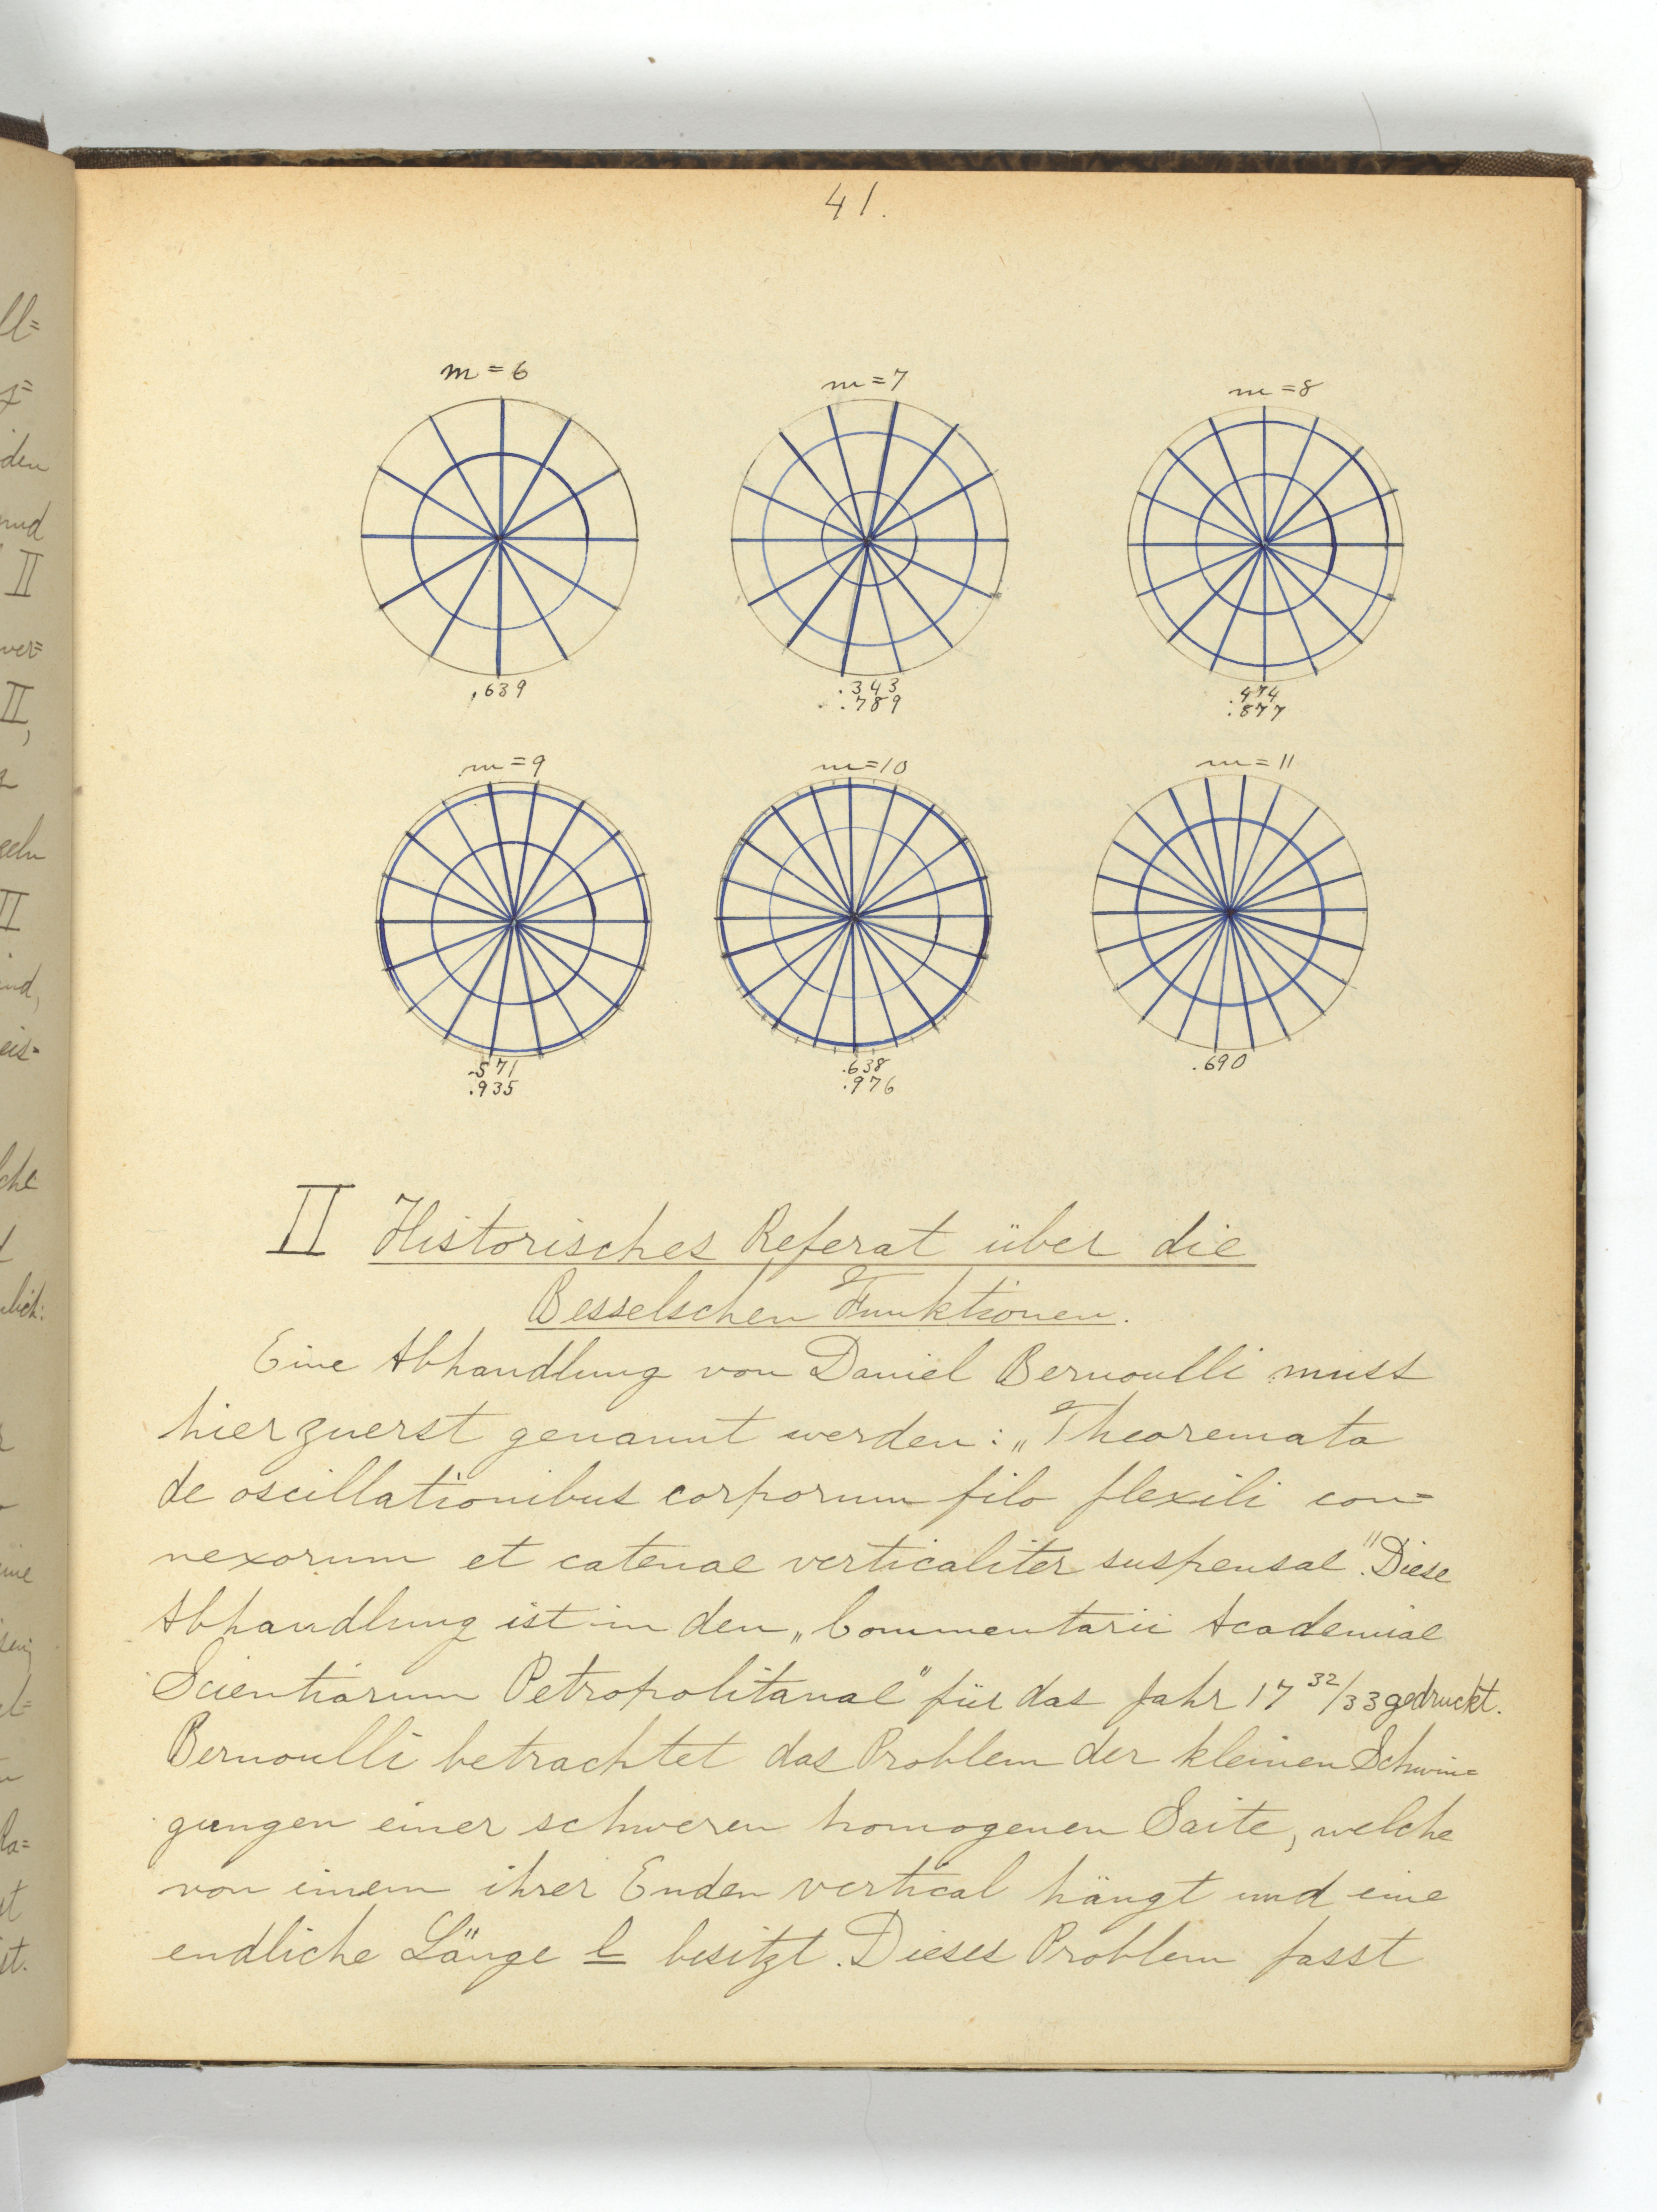 41.
m = 6
m = 7
m = 8
.639
.343
.789
.474
.877
m = 9
m = 10
m = 11
.571
.935
.638
.976
.690
II Historisches Referat über die
Besselschen Funktionen.
Eine Abhandlung von Daniel Bernoulli muss
hier zuerst genannt werden: „Theoremata
de oscillationibus corporum filo flexili con=
nexorum et catenae verticaliter suspensae". Diese
Abhandlung ist in den „Commentarii Academiae
Scientiarum Petropolitanae" für das Jahr 17 32/33 gedruckt.
Bernoulli betrachtet das Problem der kleinen Schwin=
gungen einer schweren homogenen Saite, welche
von einem ihrer Enden vertical hängt und eine
endliche Länge l besitzt. Dieses Problem fasst